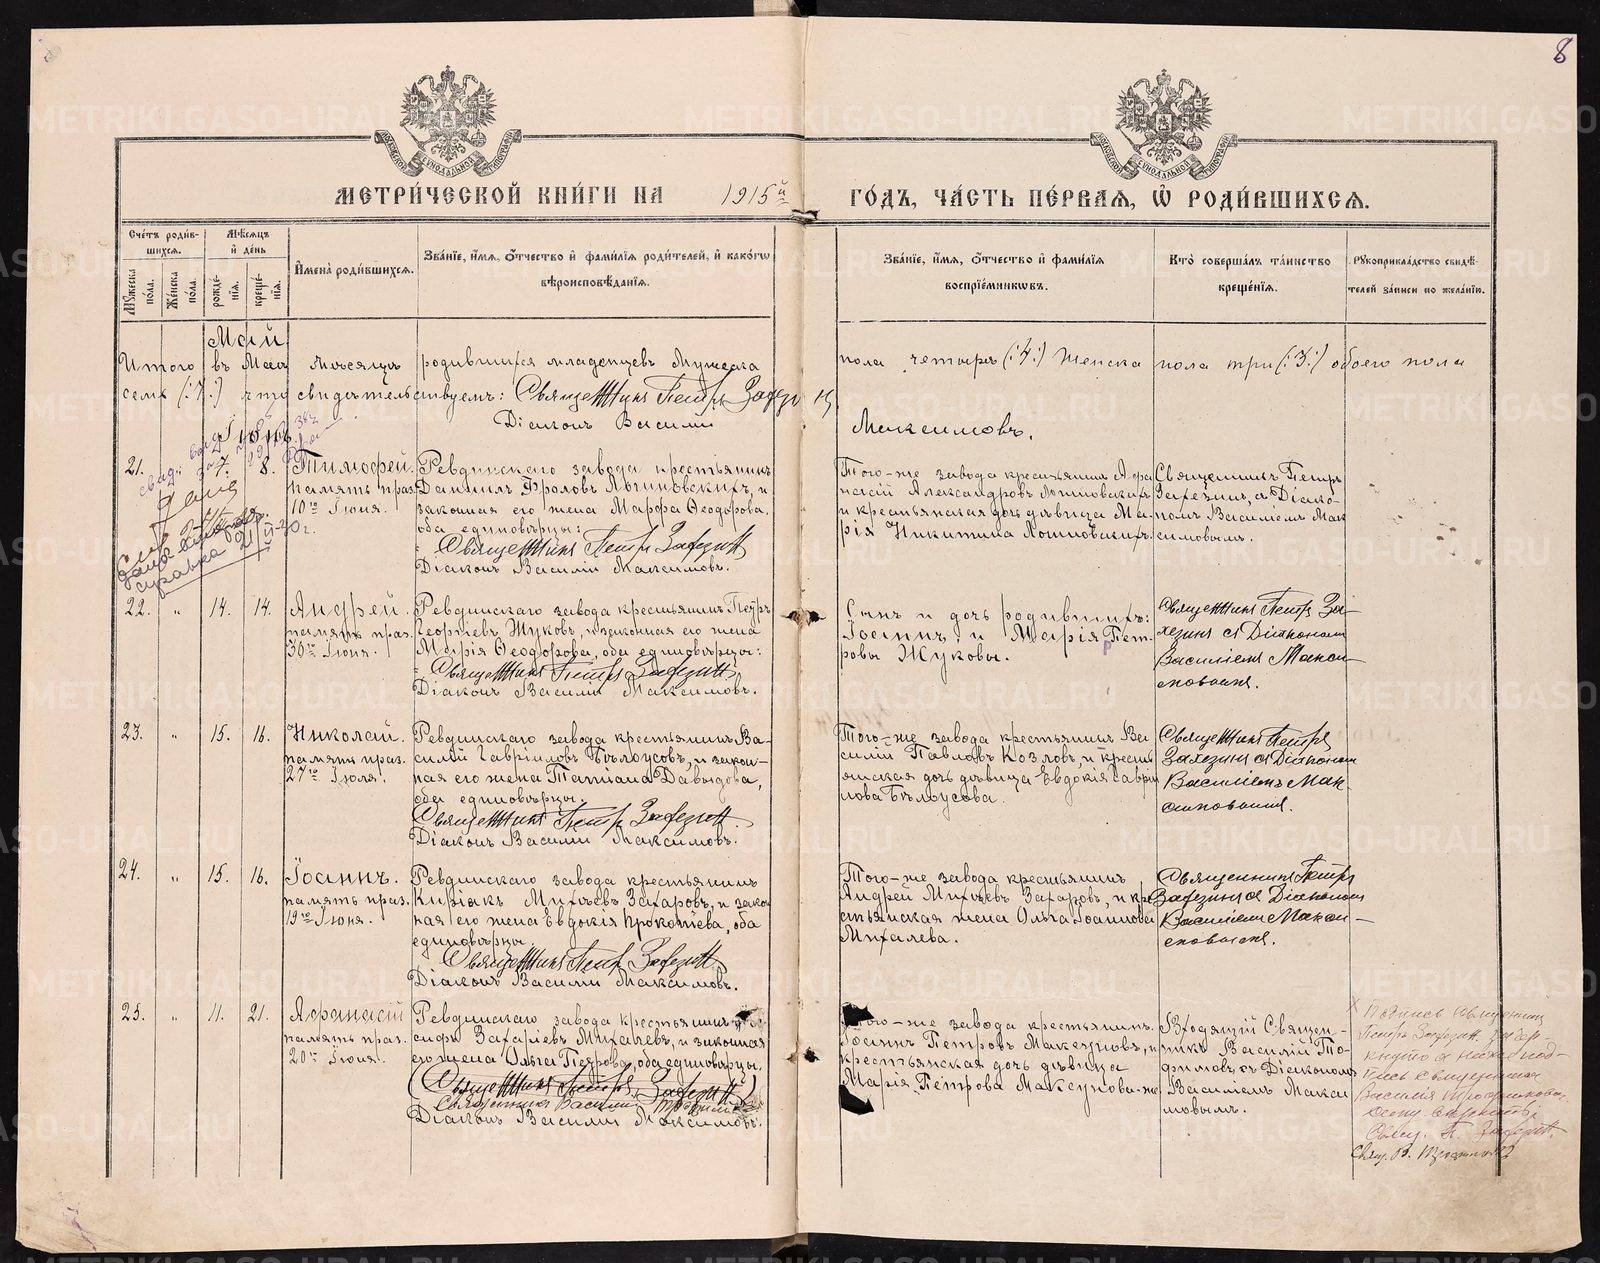 8
МОСКОВСКОЙ СѴНОДАЛЬНОЙ ТИПОГРАФІИ
МОСКОВСКОЙ СѴНОДАЛЬНОЙ ТИПОГРАФІИ
МЕТРИ́ЧЕСКОЙ КНИ́ГИ НА 1915й ГО́ДЪ, ЧА́СТЬ ПЕ́РВАѦ, Ѡ҆ РОДИ́ВШИХСѦ.
Сче́тъ роди́в-
шихсѧ.
Мꙋ́жеска по́ла.
Же́нска по́ла.
Мѣ́сѧцъ
и҆ де́нь
рожде́-
нїѧ.
креще́-
нїѧ.
И҆мена̀ роди́вшихсѧ.
Зва́нїе, и҆́мѧ, ѻ҆́тчество и҆ фами́лїѧ роди́телей, и҆ како́гѡ
вѣроисповѣ́данїѧ.
Зва́нїе, и҆́мѧ, ѻ҆́тчество и҆ фами́лїѧ
воспрїе́мникѡвъ.
Кто̀ соверша́лъ та́инство
креще́нїѧ.
Рꙋкоприкла́дство свидѣ́-
телей за́писи по жела́нїю.
Май
Итого въ Маѣ мѣсяцѣ родившихся младенцевъ мужеска пола четыре (:4:) женска пола три (:3:) обоего пола
семь (:7:) что свидѣтельствуемъ: Священникъ Петръ Залезинъ
Діаконъ Василій Максимовъ.
Іюнь
21.
7.
8.
Тимофей.
память праз.
10го Іюня.
Ревдинскаго завода крестьянинъ
Даніилъ Фроловъ Логиновскихъ, и
законная его жена Марфа Ѳеодорова,
оба единовѣрцы:
Священникъ Петръ Залезинъ
Діаконъ Василій Максимовъ.
Того-же завода крестьянинъ Афа
насій Александровъ Логиновскихъ
и крестьянская дочь дѣвица Ма-
рія Никитина Логиновскихъ.
Священникъ Петръ
Залезинъ, съ Діако-
номъ Василіемъ Мак
симовымъ.
справка
22.
"
14.
14.
Андрей.
память праз.
30го Іюня.
Ревдинскаго завода крестьянинъ Петръ
Георгіевъ Жуковъ, и законная его жена
Марія Ѳеодорова, оба единовѣрцы:
Священникъ Петръ Залезинъ
Діаконъ Василій Максимовъ.
Сынъ и дочь родившихъ:
Іоаннъ и Марія Пет-
ровы Жуковы.
Священникъ Петръ За-
лезинъ съ Діакономъ
Василіемъ Макси-
мовымъ.
23.
"
15.
16.
Николай.
память праз.
27го Іюля.
Ревдинскаго завода крестьянинъ Ва-
силій Гавріиловъ Бѣлоусовъ, и закон-
ная его жена Татіана Давыдова,
оба единовѣрцы.
Священникъ Петръ Залезинъ.
Діаконъ Василій Максимовъ.
Того-же завода крестьянинъ Ва
силій Павловъ Козловъ, и кресть
янская дочь дѣвица Евдокія Гаврі
илова Бѣлоусова.
Священникъ Петръ
Залезинъ съ Діакономъ
Василіемъ Мак-
симовымъ.
24.
"
15.
16.
Іоаннъ.
память праз.
19го Іюня.
Ревдинскаго завода крестьянинъ
Киріакъ Михѣевъ Захаровъ, и закон
ная его жена Евдокія Прокопіева, оба
единовѣрцы.
Священникъ Петръ Залезинъ
Діаконъ Василій Максимовъ.
Того-же завода крестьянинъ
Андрей Михѣевъ Захаровъ, и кре
стьянская жена Ольга Іоаннова
Михалева.
Священникъ Петръ
Залезинъ съ Діакономъ
Василіемъ Макси-
мовымъ.
25.
"
11.
21.
Афанасій
память праз.
20го Іюня.
Ревдинскаго завода крестьянинъ
Захаріевъ Михалевъ, и законная
его жена Ольга Петрова, оба единовѣрцы.
(Священникъ Петръ Залезинъ)
Священникъ Василій Трофимовъ
Діаконъ Василій Максимовъ.
Того-же завода крестьянинъ
Іоаннъ Петровъ Максуновъ, и
крестьянская дочь дѣвица
Марія Петрова Максунова-же
Священ-
никъ Василій Тро-
фимовъ съ Діакономъ
Василіемъ Макси
мовымъ.
X Подпись Священника
Петра Залезина зачер-
кнуто а ниже под-
пись священника
Василія Трофимова
Свящ. П. Залезинъ.
METRIKI.GASO-URAL.RU